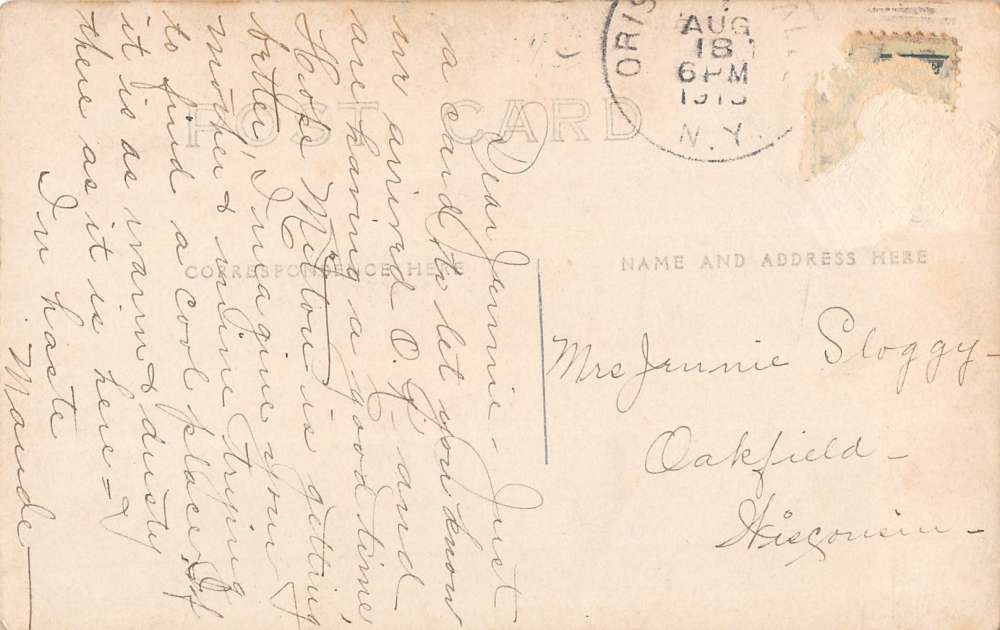 POST CARD
CORRESPONDENCE HERE
NAME AND ADDRESS HERE
ORIS
AUG
18
6 PM
N.Y.
Mrs Jennie Sloggy-
Oakfield-
Wisconsin-
Dear Jennie- Just
a card to let you know
we arived O.K. and
are having a good time,
Hope Milton is getting
better, I imagine you
mother & mline trying
to find a cool place. If
it is as warm & dusty
there as it is here-
In haste
Maude